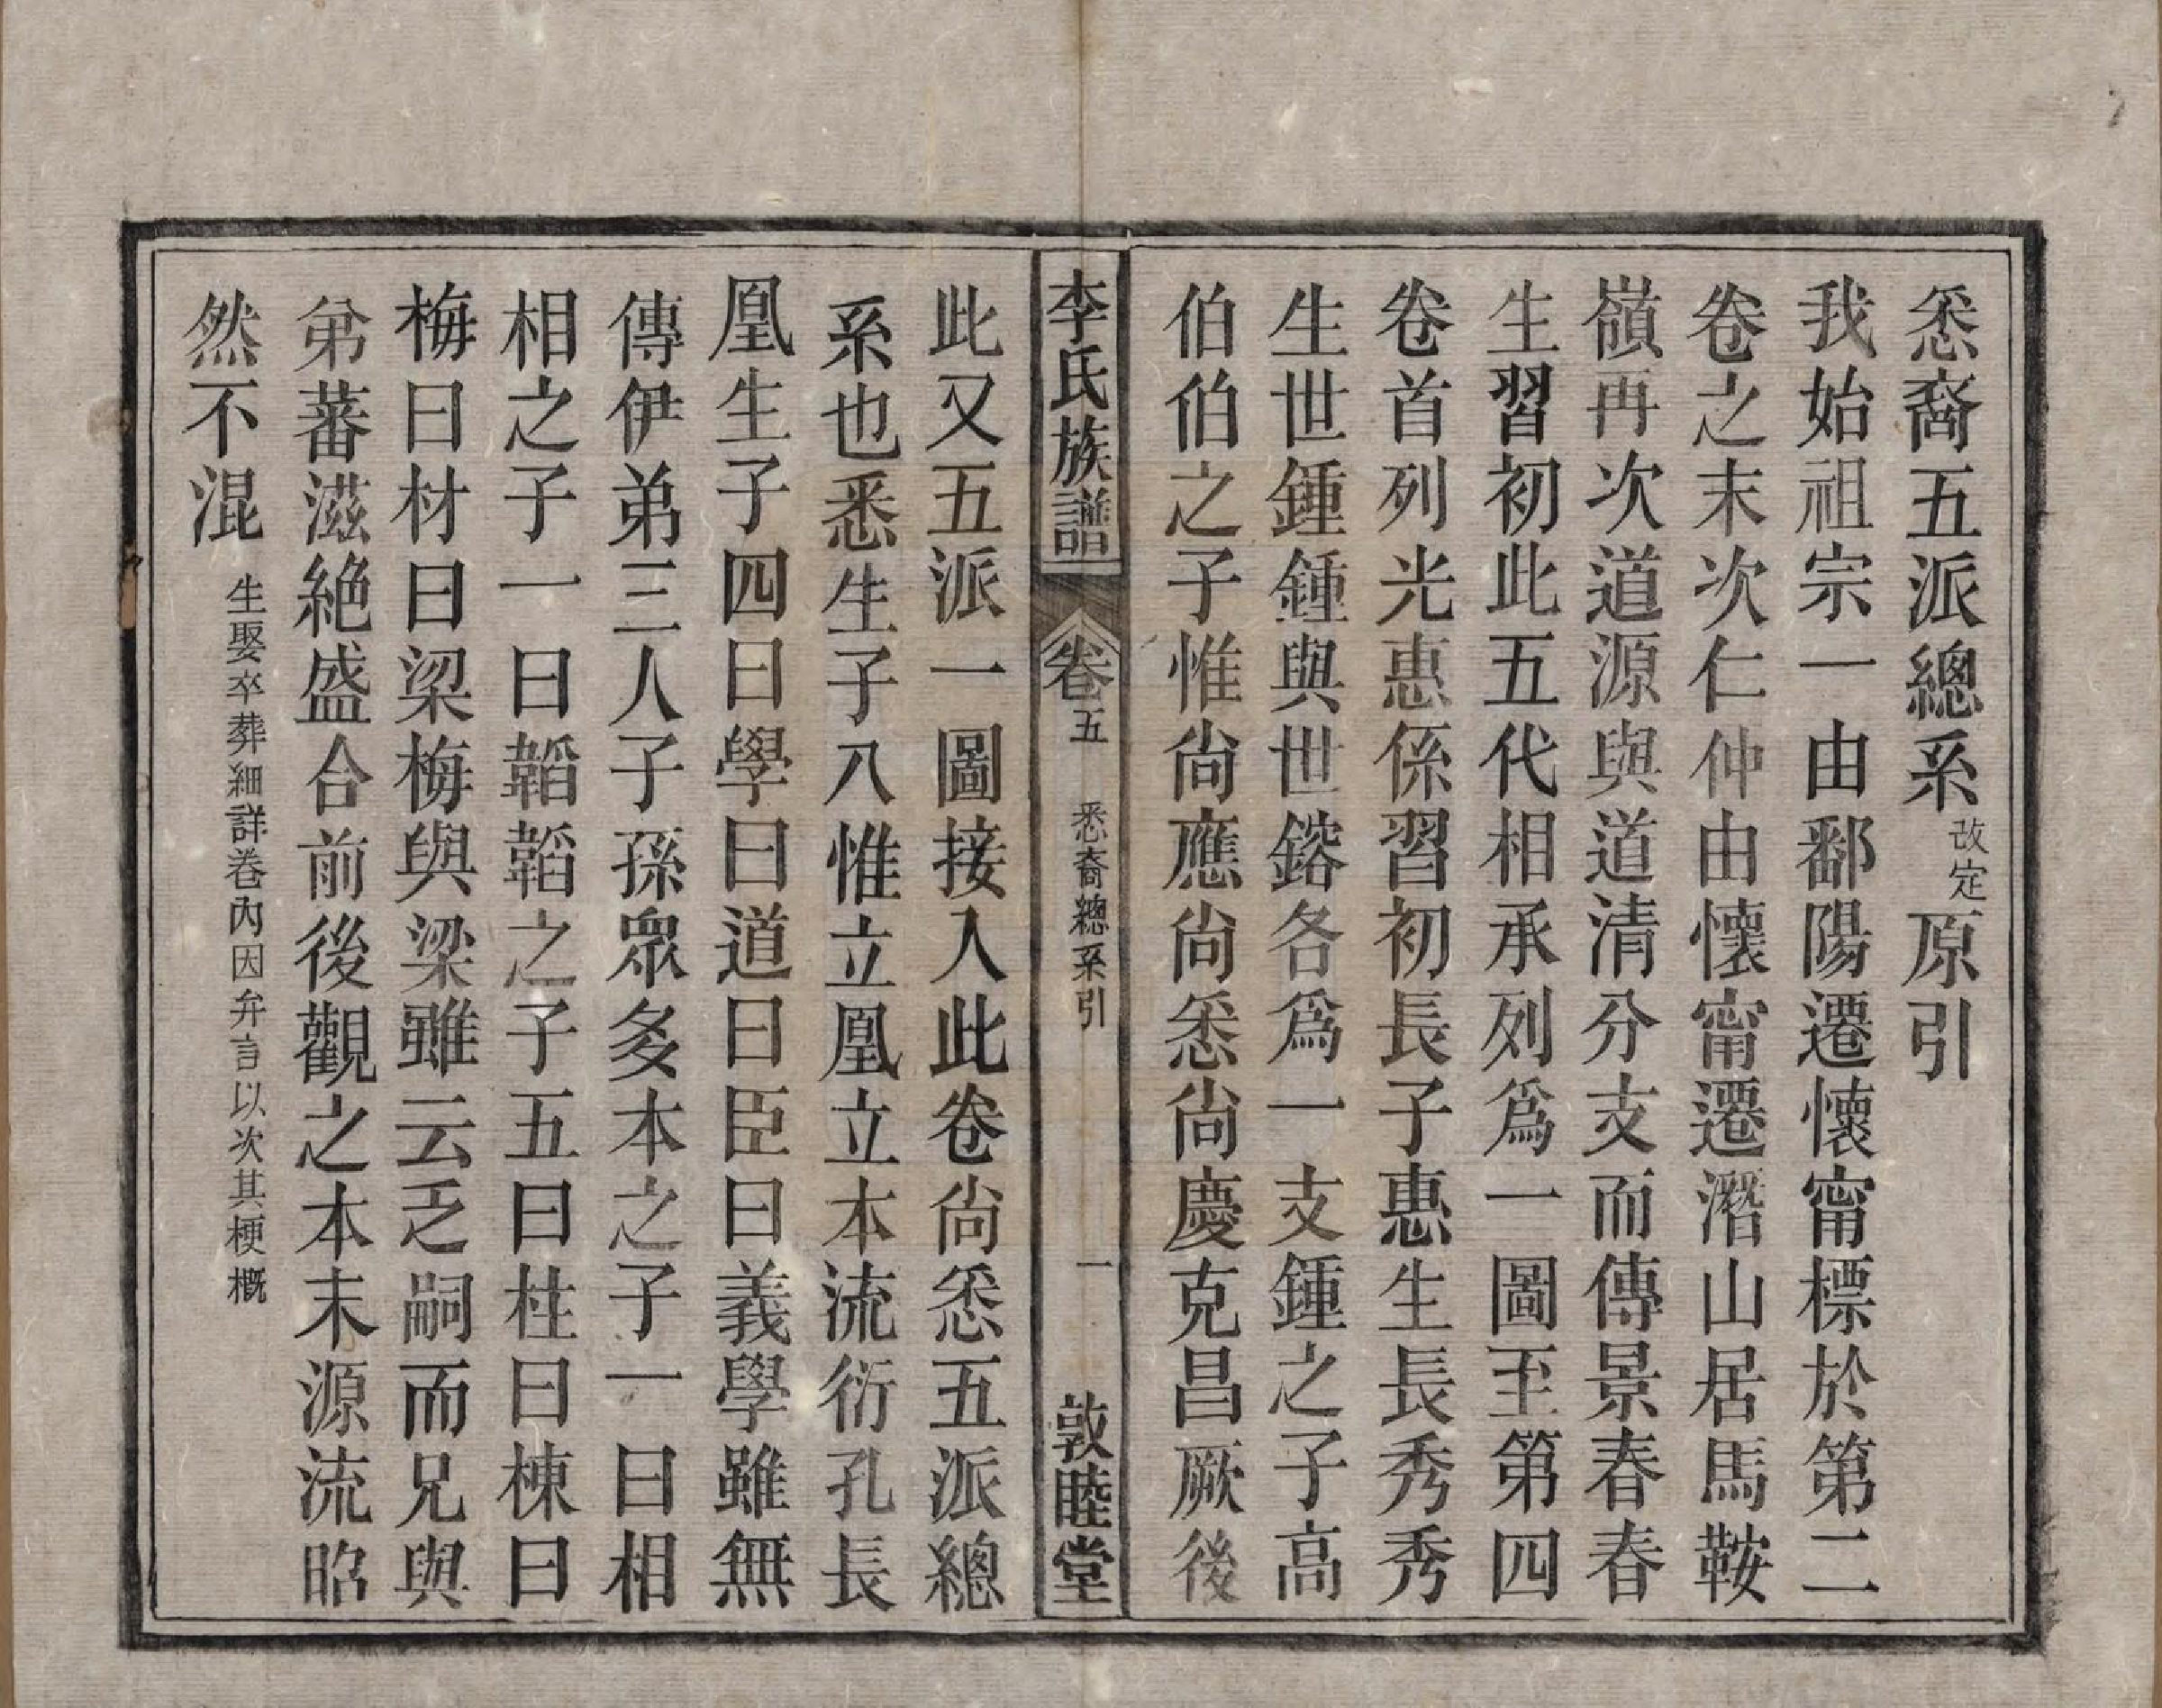 悉裔五派總系改定原引
我始祖宗一由鄱陽遷懷甯標於第二
卷之末次仁仲由懷甯遷潛山居馬鞍
嶺再次道源與道清分支而傳景春春
生習初此五代相承列爲一圖至第四
卷首列光惠係習初長子惠生長秀秀
生世鍾鍾與世鎔各爲一支鍾之子高
伯伯之子惟尙應尙悉尙慶克昌厥後
李氏族譜
卷五
悉裔總系引
一
敦睦堂
此又五派一圖接入此卷尙悉五派總
系也悉生子八惟立凰立本流衍孔長
凰生子四曰學曰道曰臣曰義學雖無
傳伊弟三人子孫眾多本之子一曰相
相之子一曰韜韜之子五曰柱曰棟曰
梅曰材曰梁梅與梁雖云乏嗣而兄與
弟蕃滋絶盛合前後觀之本末源流昭
然不混生娶卒葬細詳卷內因弁言以次其梗概